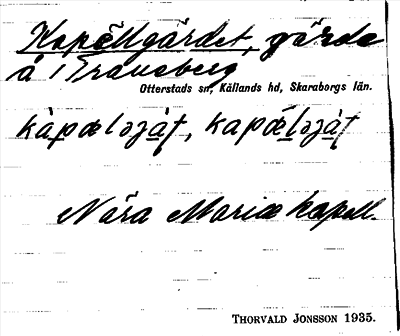 Kapällgärdet, gärde
å Traneberg
Otterstads sn, Kållands hd, Skaraborgs län.
kàpæləgá̱t, kapǽləgà̱t
Nära Mariæ kapell.
THORVALD JONSSON 1935.